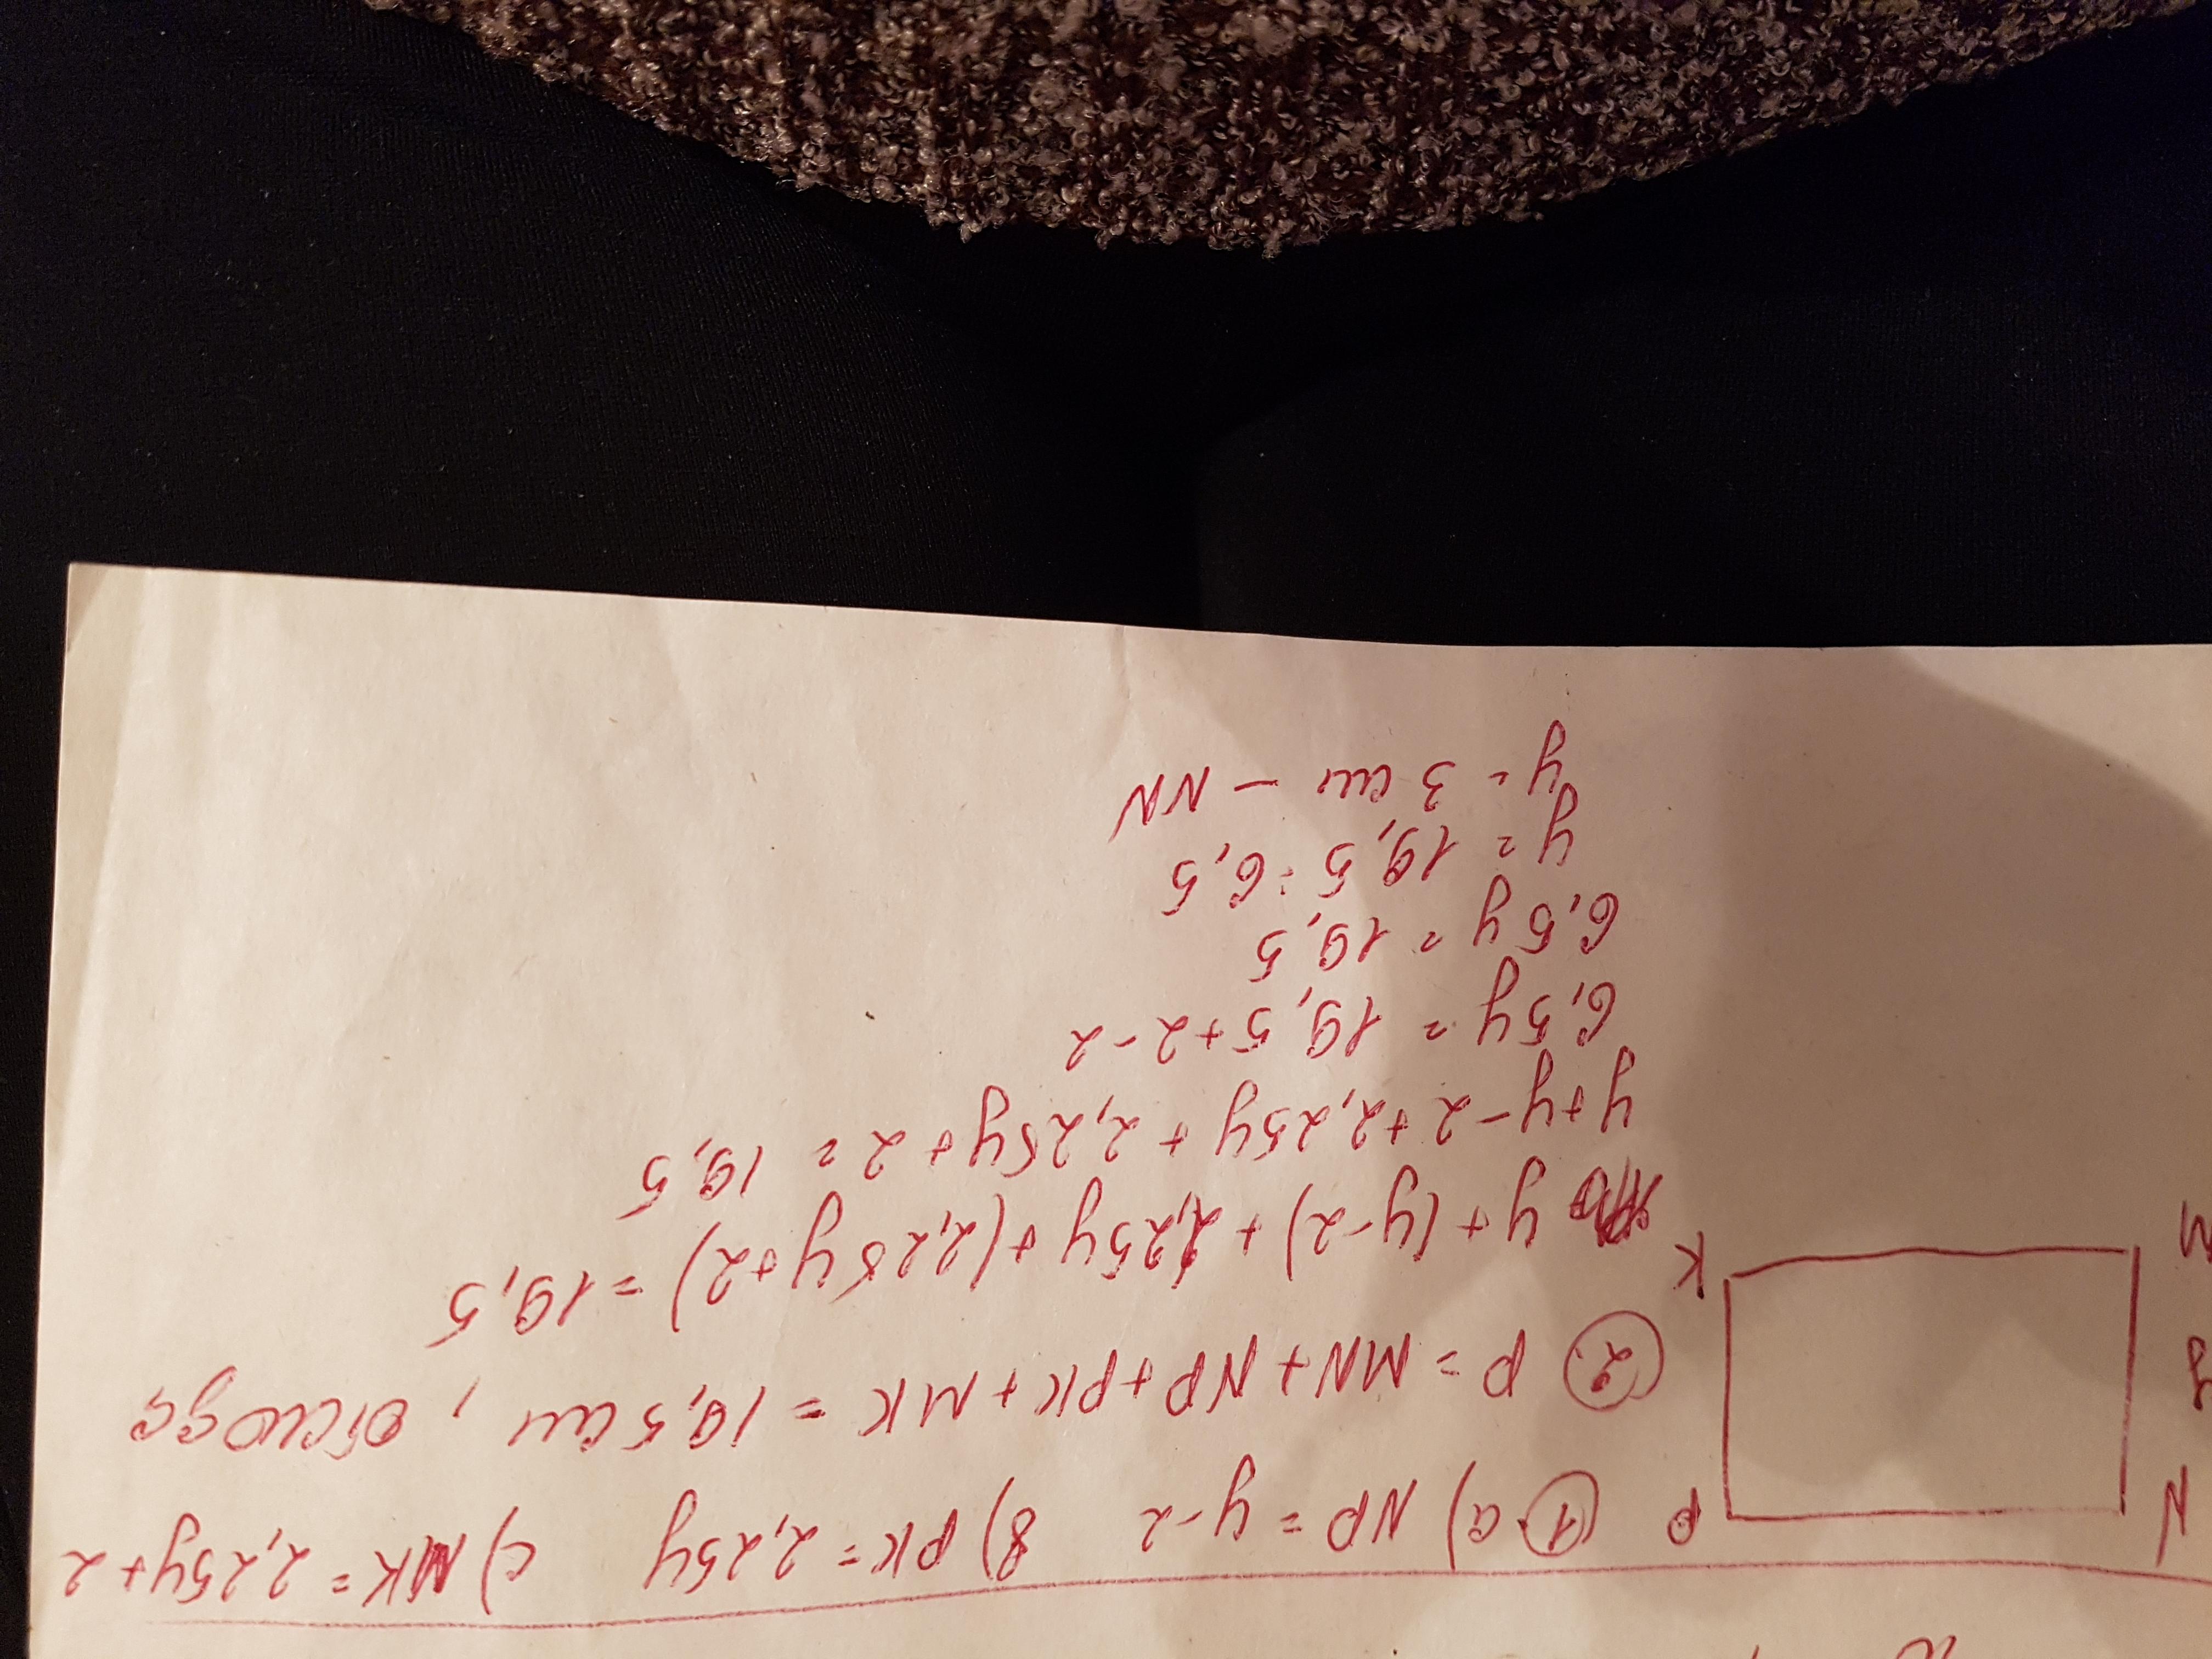 ① a) NP = y-2 в) PK = 2,25y c) MK = 2,25y+2
②. P = MN + NP + PK + MK = 19,5 см, отсюда
y + (y-2) + 2,25y + (2,25y+2) = 19,5
y+y-2+2,25y + 2,25y+2 = 19,5
6,5y = 19,5+2-2
6,5y = 19,5
y = 19,5 : 6,5
y = 3 см - NN
N
P
y
M
K